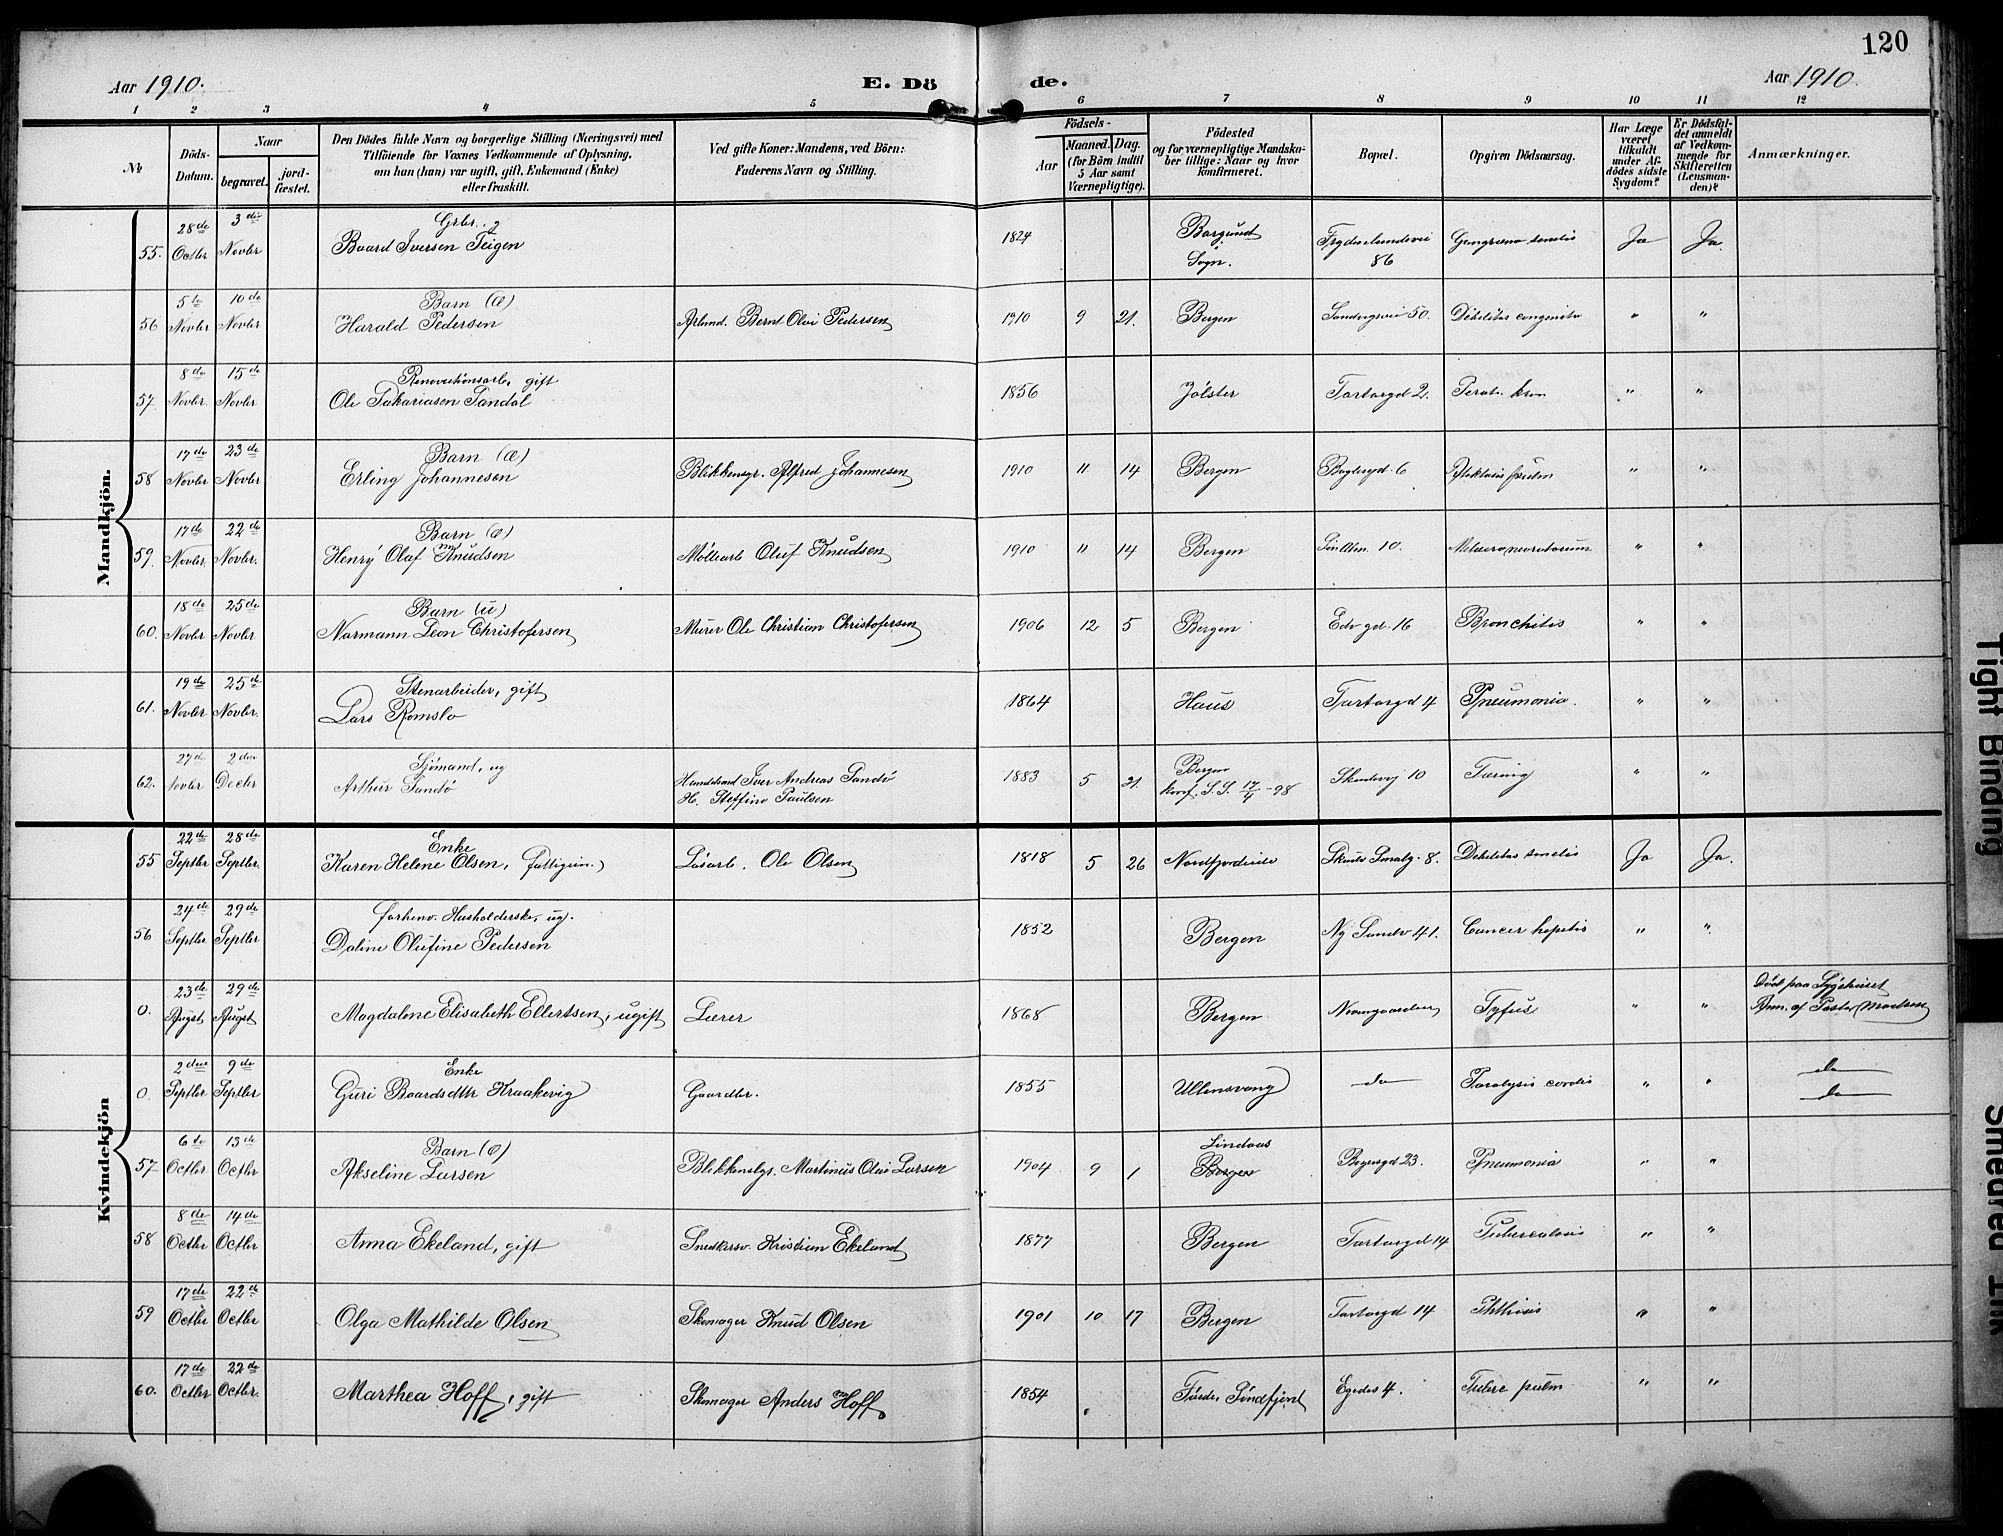 120
Aar 1910.
E. Dö de.
Aar 1910.
1 2 3 4 5 6 7 8 9 10 11 12
№
Döds-Datum.
Naar
begravet.
jord-fæstet.
Den Dödes fulde Navn og borgerlige Stilling (Næringsvei) med
Tilföiende for Voxnes Vedkommende af Oplysning,
om han (hun) var ugift, gift, Enkemand (Enke)
eller fraskilt.
Ved gifte Koner: Mandens, ved Börn:
Faderens Navn og Stilling.
Födsels-
Aar
Maaned. Dag.
(for Börn indtil
5 Aar samt
Værnepligtige).
Födested
og for værnepligtige Mandska-
ber tillige: Naar og hvor
konfirmeret.
Bopæl.
Opgiven Dödsaarsag.
Har Læge
været
tilkaldt
under Af-
dödes sidste
Sygdom?
Er Dödsfal-
det anmeldt
af Vedkom-
mende for
Skifteretten
(Lensman-
den)?
Anmærkninger.
Mandkjön.
55. 28de Octbr 3die Novbr Baard Iversen Teigen 1824 Borgund Sogn. 86 Ja Ja.
56 5te Novbr 10de Novbr Barn (æ) Harald Pedersen Bernt Olai Pedersen 1910 9 21. Bergen 50. Debilitas congenita " "
57. 8de Novbr. 15de Novbr Renovationsarb., gift Ole Sakariasen Sandal 1856 Jølster Tartargd 2. " "
58 17de Novbr 23de Novbr Barn (æ) Erling Johannesen Blikkenslgr. Alfred Johannesen 1910 11 14 Bergen 6 " "
59. 17de Novbr. 22de Novbr. Barn (æ) Henry Olaf Knudsen Møllearb Oluf Knudsen 1910 11 14 Bergen 10. " "
60. 18de Novbr 25de Novbr Barn (u) Normann Leon Christofersen Murer Ole Christian Christofersen 1906 12 5 Bergen 16 Bronchitis " "
61. 19de Novbr 25de Novbr. Stenarbeider, gift Lars Romslo 1864 Haus Tartargd 4 Pneumonia. " "
62. 27de Novbr 2den Decbr Sjömand, ug Arthur Sandö Iver Andreas Sandö
H. Steffine Paulsen 1883 5 21. Bergen
konf. S. S. 17/4 -98 10 Tæring " "
Kvindekjön
55 22de Septbr 28de Septbr. Enke Karen Helene Olsen, (fattigun.) Løsarb. Ole Olsen 1818 5 26 Nordfjordeide 8. Debilitas senilis Ja Ja.
56 24de Septbr 29de Septbr forhenv. Husholderske, ug. Daline Olufine Pedersen 1852 Bergen Ny Sandv 41. Cancer hepatis " "
0. 23de Augst 29de Augst Magdalene Elisabeth Ellertsen, ugift Lærer 1868 Bergen Tyfus " " Död paa Sygehuset
Anm. af Pastor Madsen
0. 2den Septbr 9de Septbr Enke Guri Baardsdtr Kraakevig Gaardbr. 1855 Ullensvang do Paralysis cordis " " do
do
57 6te Octbr 13de Octbr Barn (æ) Akseline Larsen Blikkenslgr. Martinius Olai Larsen 1904 9 1 Lindaas
Bergen 23. Pneumonia " "
58 8de Octbr 14de Octbr Anna Ekeland, gift Snedkersv. Kristian Ekeland 1877 Bergen Tartargd 14 Tuberculosis " "
59 17de Octbr 22de Octbr Olga Mathilde Olsen Skomager Knud Olsen 1901 10 17 Bergen Tartargd 14 Phthisis " "
60. 17de Octbr 22de Octbr. Marthea Hoff, gift Skomager Anders Hoff 1854 Førde, Søndfjord Egedes 4. Tuberc pulm " "
Tight Binding
Smeared Ink